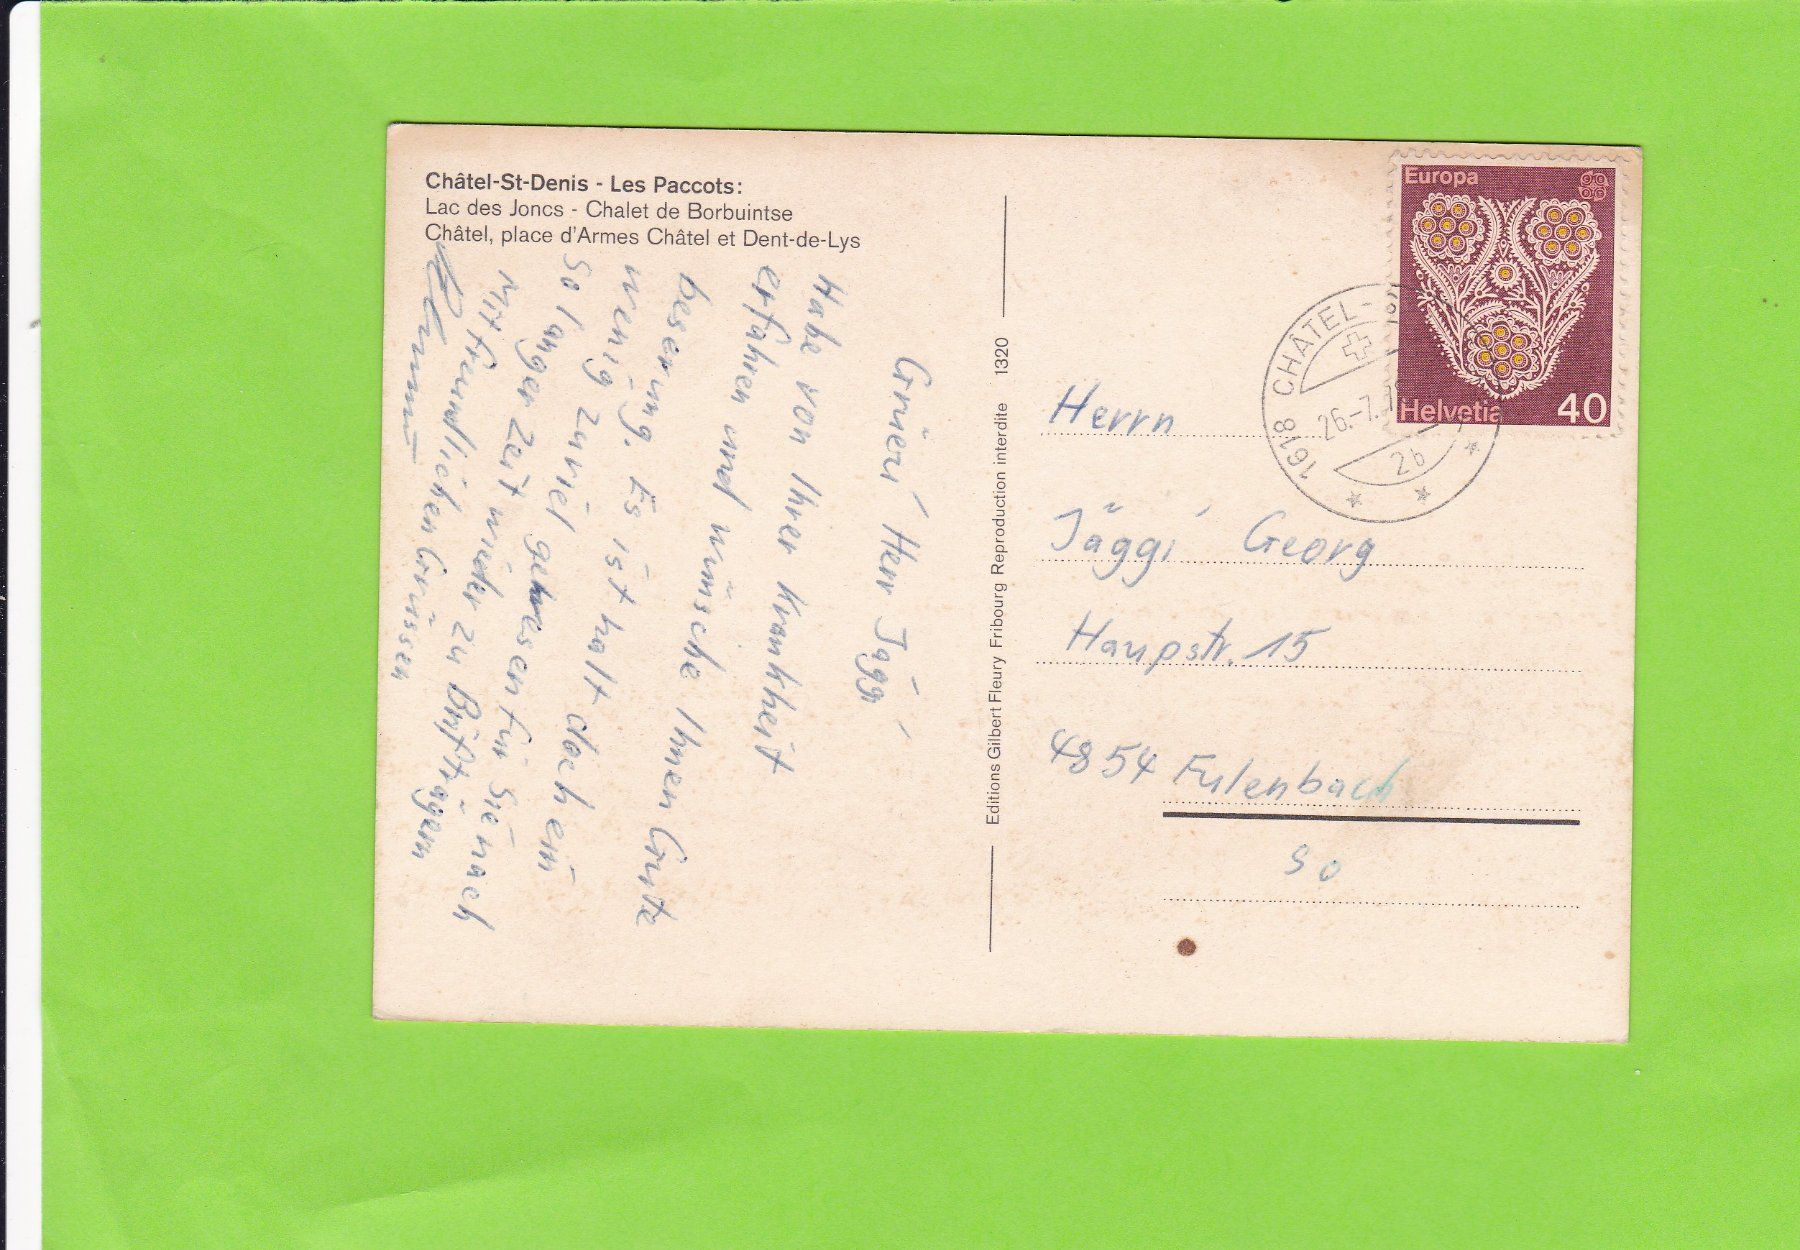 Châtel-St-Denis - Les Paccots:
Lac des Joncs - Chalet de Borbuintse
Châtel, place d'Armes Châtel et Dent-de-Lys
Grüezi Herr Jäggi
Habe von Ihrer Krankheit
erfahren und wünsche Ihnen Gute
beserung. Es ist halt doch ein
wenig zuviel gewesen für Sie nach
So langer Zeit wieder zu
Mit freundlichen Grüssen
Editions Gilbert Fleury Fribourg Reproduction interdite 1320
Europa
Helvetia 40
1618 CHÂTEL-
26.-7.
2b
Herrn
Jäggi Georg
Haupstr. 15
4854 Fulenbach
So